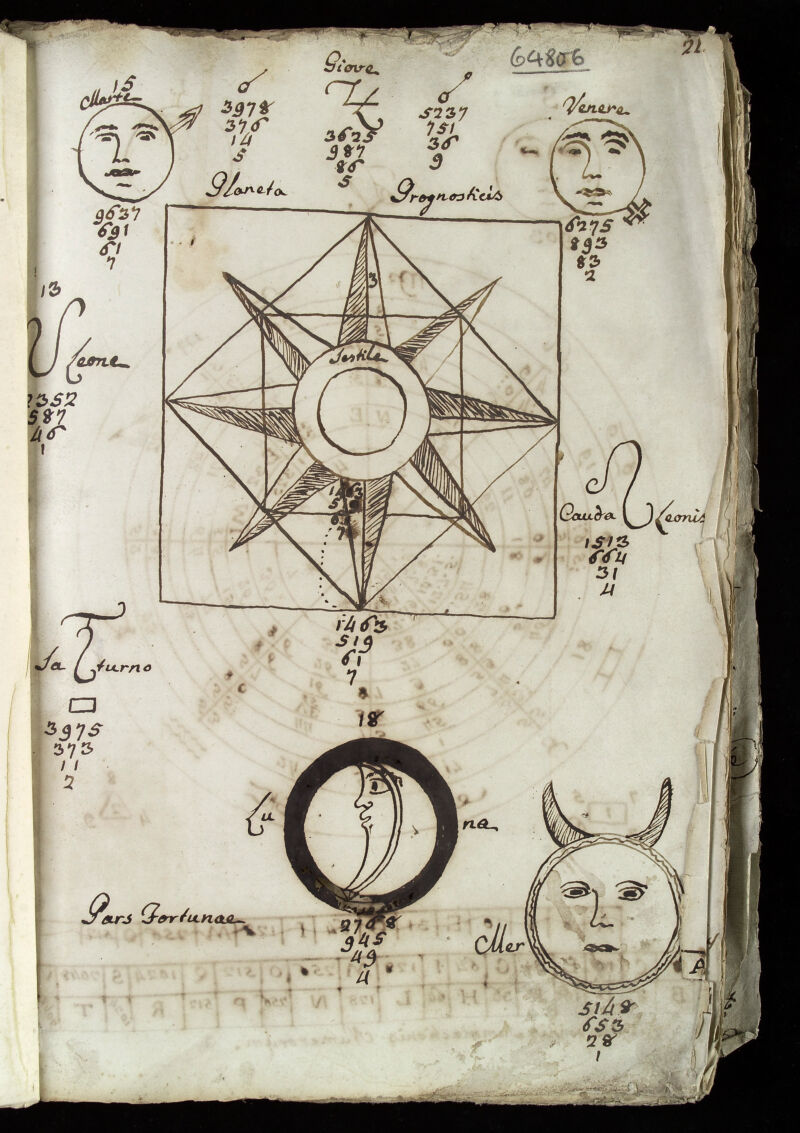 64806
21
15
Marte
9637
691
61
7
3978
376
14
5
Giove
3625
987
86
5
5237
751
36
9
Venere
6275
893
83
2
Planeta
Prognosticis
13
Leone
2352
587
46
1
3
Sestile
Cauda Leonis
1513
664
31
4
1463
519
61
7
Saturno
3975
373
11
2
18
Lu na
Pars Fortunae
2768
945
49
4
Mer
A
5148
653
28
1